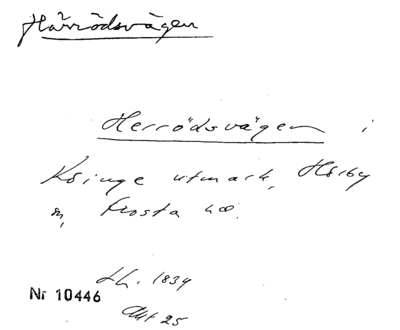 Härrödsvägen
Herrödsvägen i
Ksinge utmark, Hörby
sn, Frosta hd.
Lh. 1839
Nr 10446
Akt 25